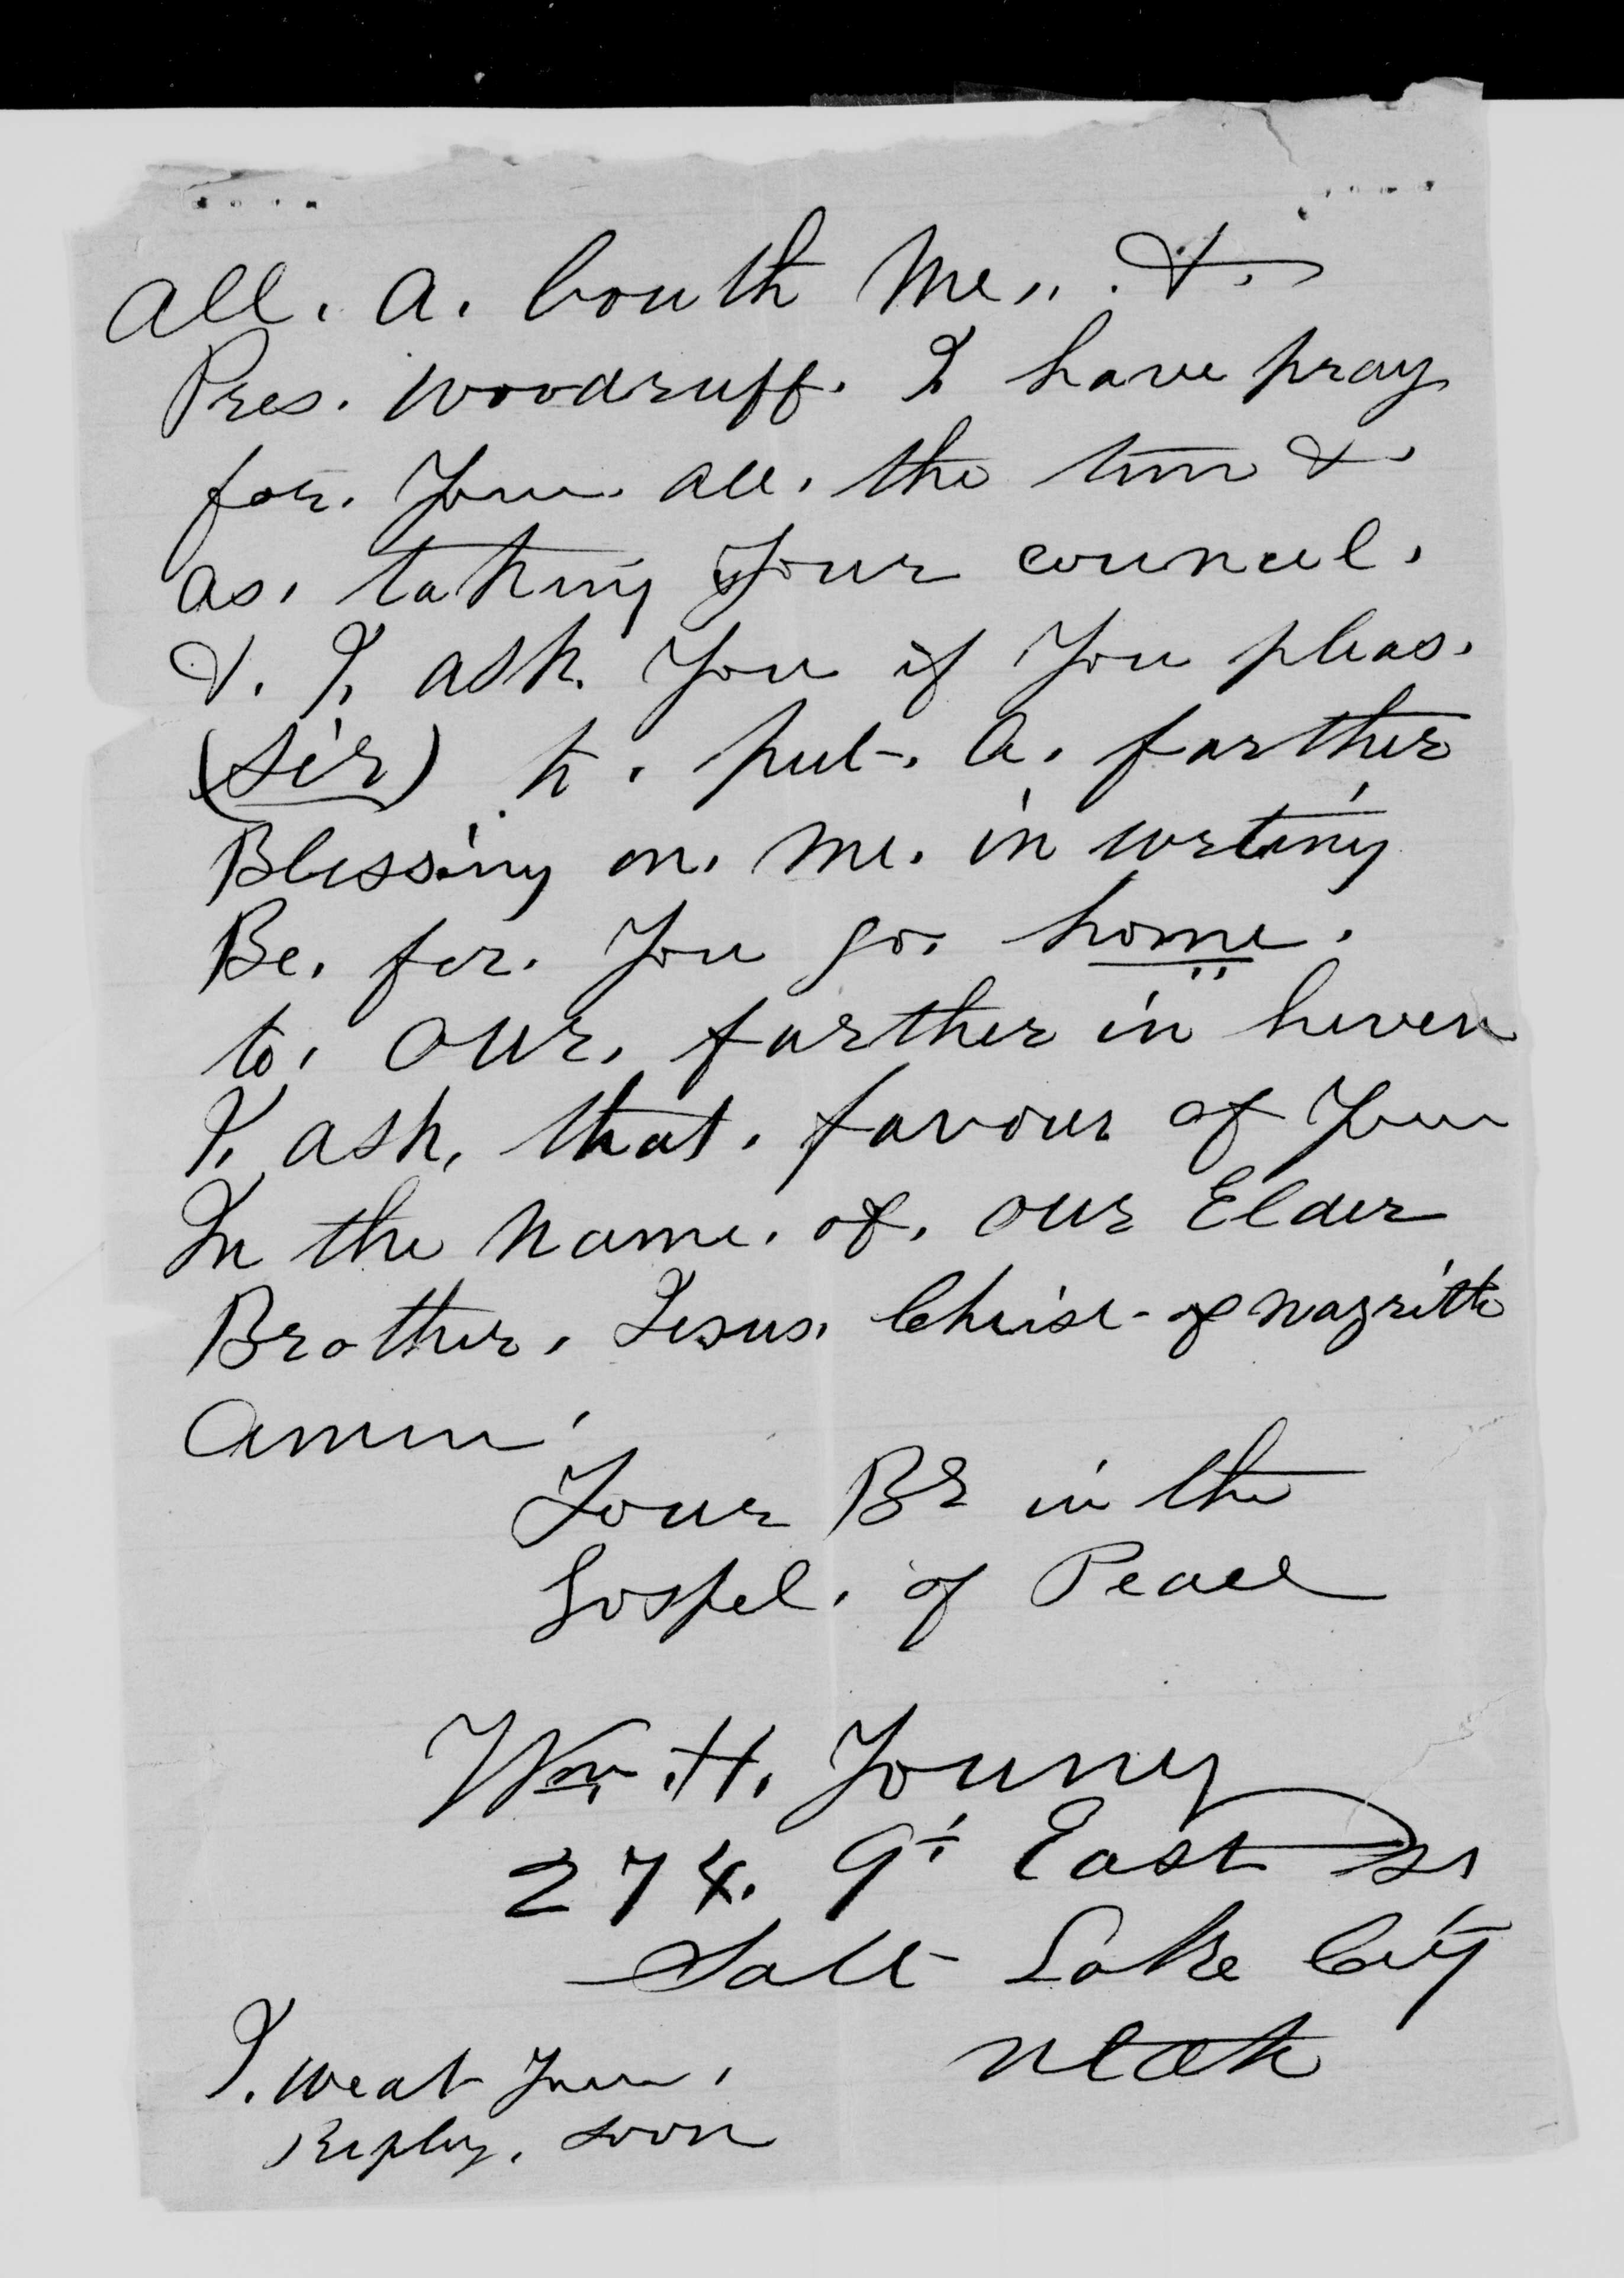 all. a. bouth Me,, . &.
Pres. Woodruff. I have pray
for. You. all. the tim &.
as. taking your councel.
&. I. ask. You if You pleas.
(Sir) to. put. a. farther
Blessing on. me. in writing
Be. for. You go. home.
to. our. farther in heven
I. ask, that. favour of You
In the Name. of. our Elder
Brother. Jesus. Christ of Nazrith
Amen.
Your Br in the
Gospel. of Peace
Wm. H. Young
274. 9t East St
Salt Lake City
Utah
I. weat Your.
Reply. soon